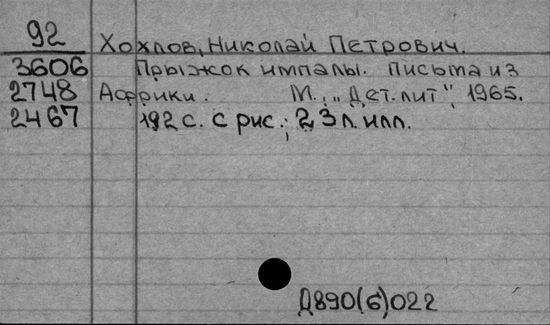 92 Хохлов, Николай Петрович.
3606 Прыжок импалы. Письма из
2748 Африки. М., „Дет. лит", 1965.
2467 192 с. с рис.; 23 л. илл.
Д890(6)022